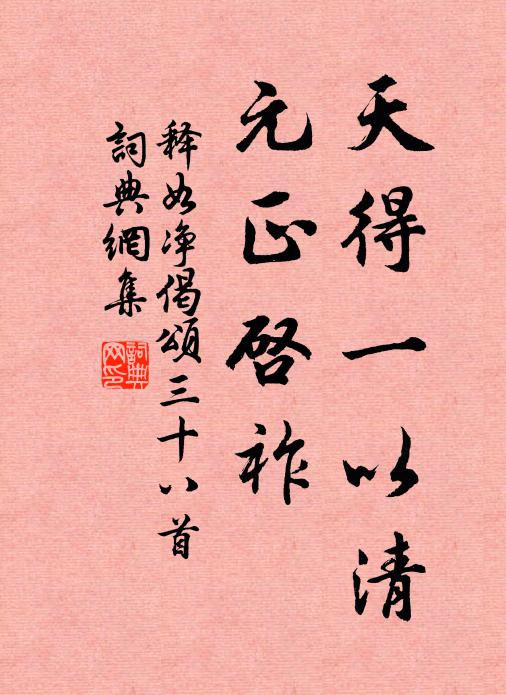 天得一以清
元正启祚
释如净偈頌三十八首
詞典網集
詞典
网印